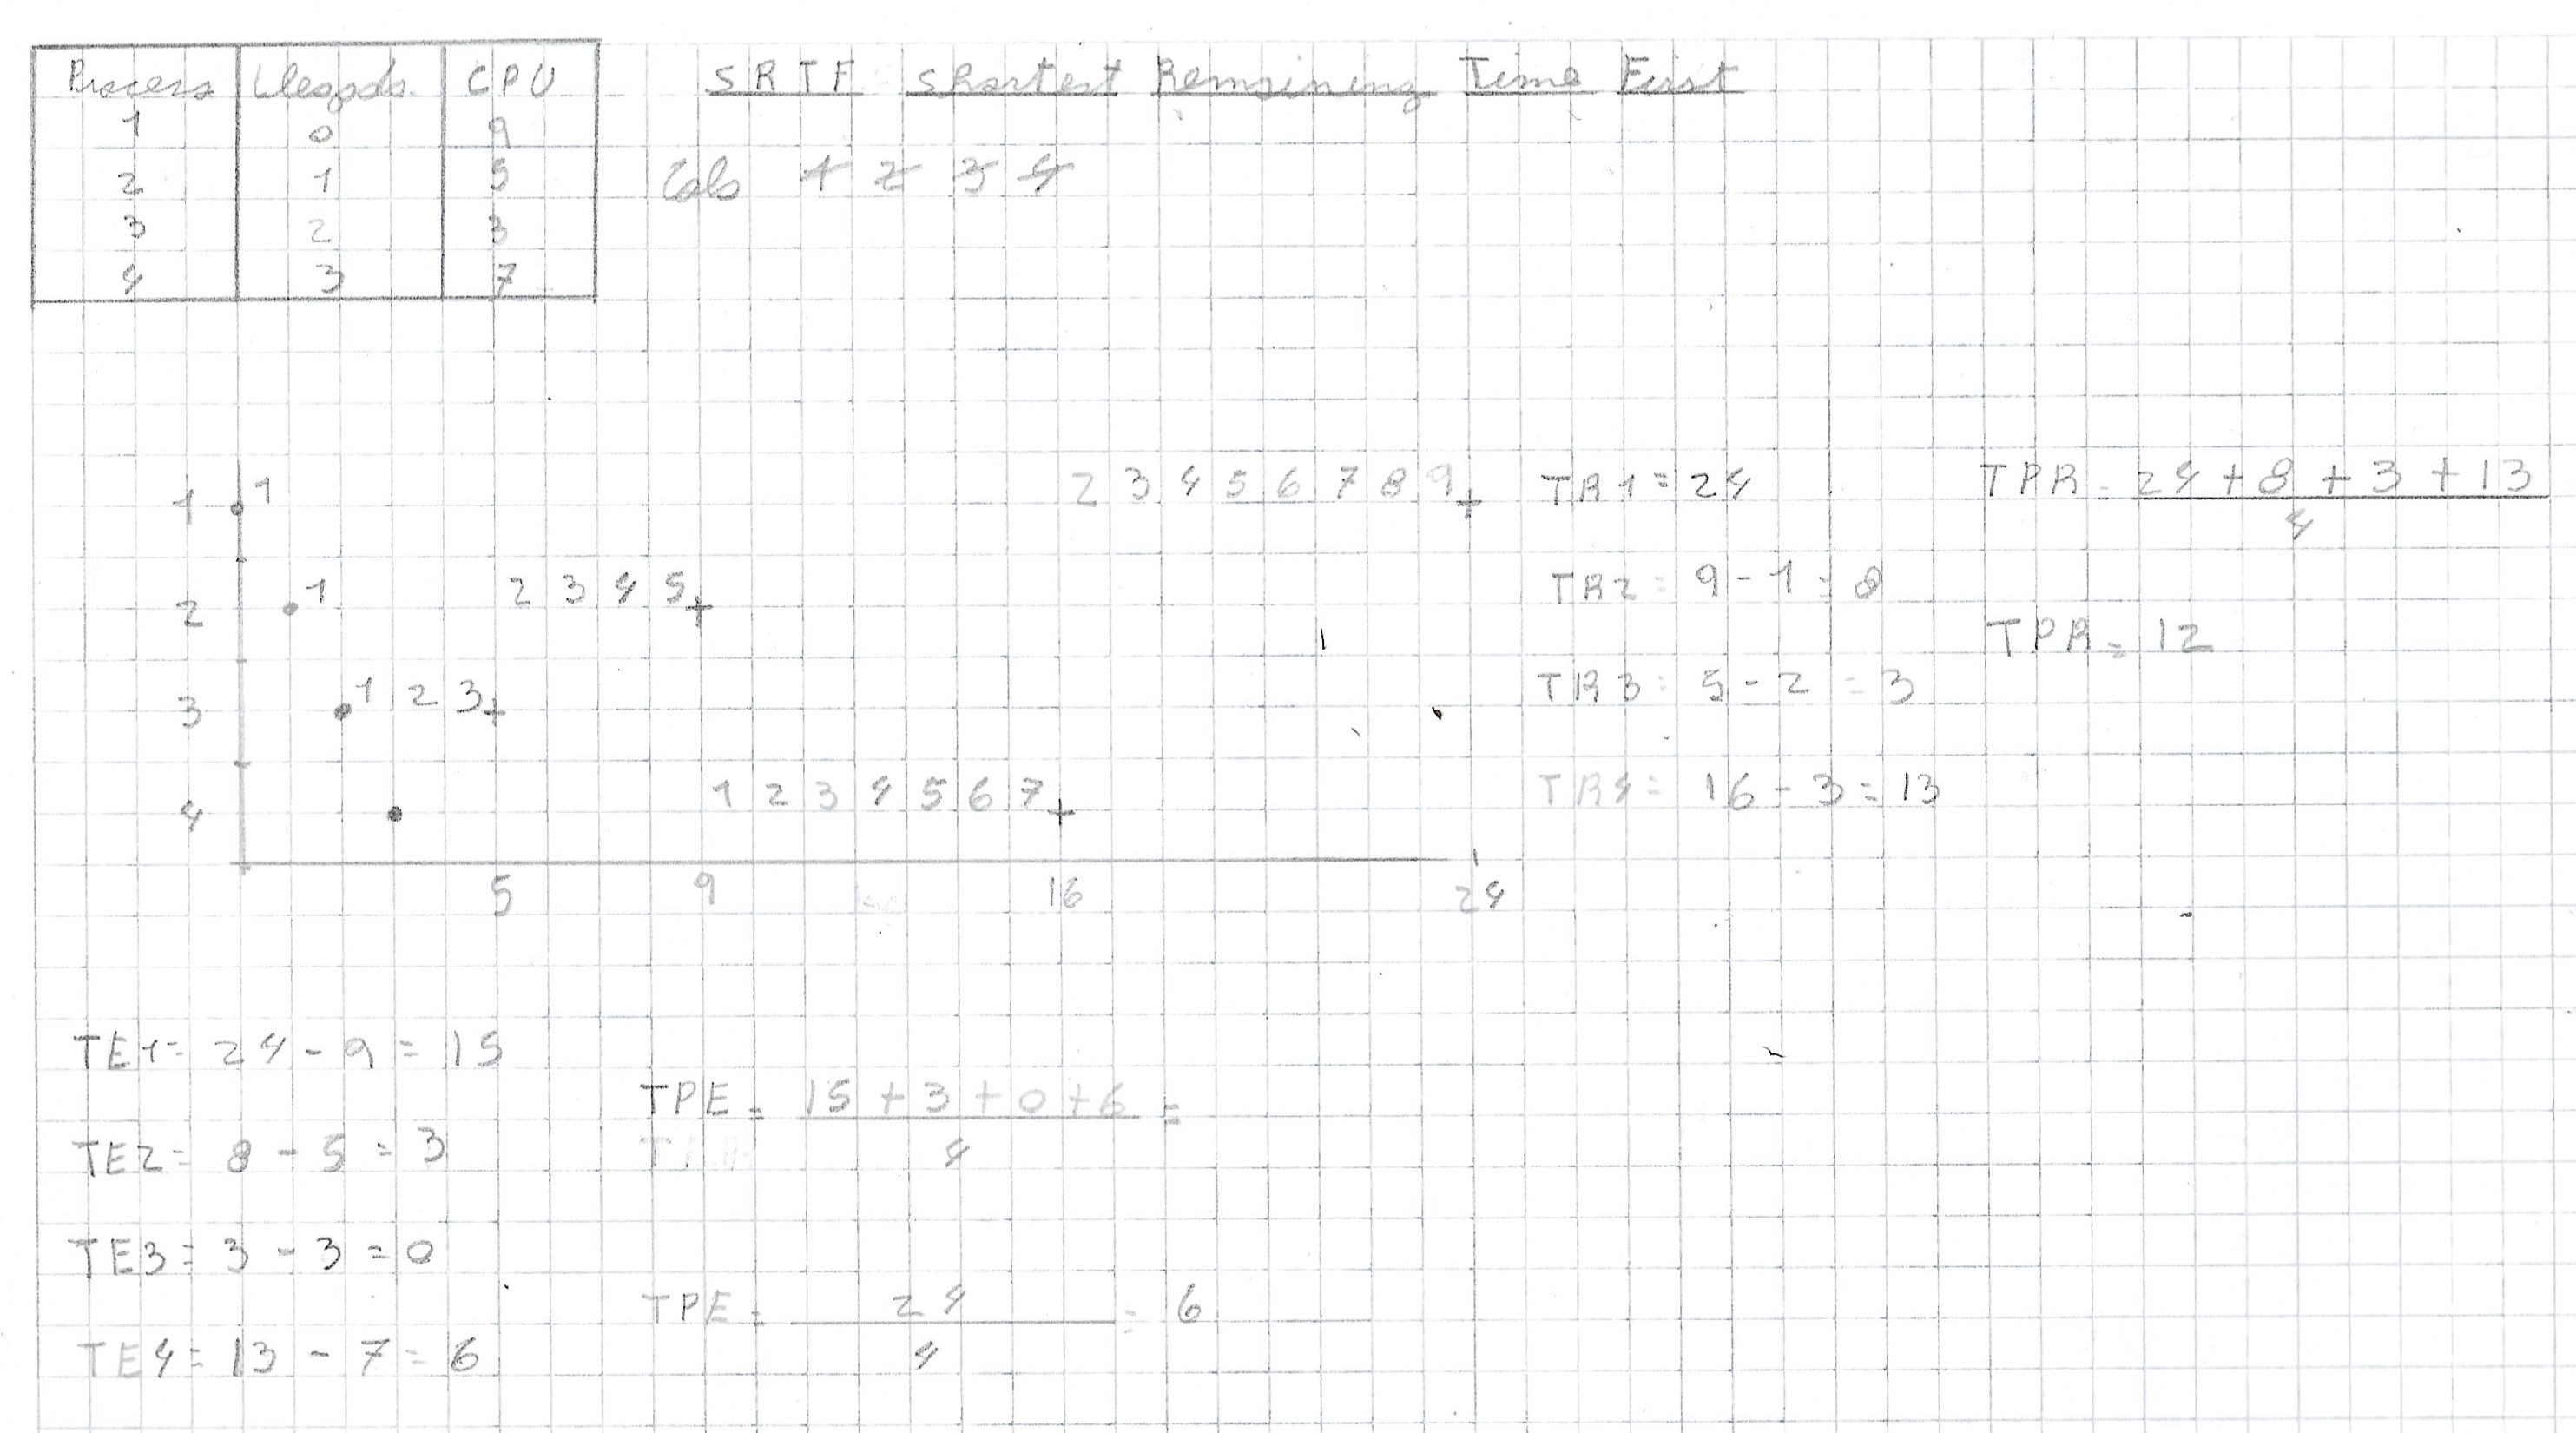 Process Llegada CPU
1 0 9
2 1 5
3 2 3
4 3 7
SRTF Shortest Remaining Time First
Cola 1 2 3 4
1 1 2 3 4 5 6 7 8 9 TR1 = 24
2 1 2 3 4 5 TR2 = 9 - 1 = 8
3 1 2 3 TR3 = 5 - 2 = 3
4 1 2 3 4 5 6 7 TR4 = 16 - 3 = 13
5 9 16 24
TPR = 24 + 8 + 3 + 13
4
TPR = 12
TE1 = 24 - 9 = 15
TE2 = 8 - 5 = 3
TE3 = 3 - 3 = 0
TE4 = 13 - 7 = 6
TPE = 15 + 3 + 0 + 6 =
4
TPE = 24 = 6
4